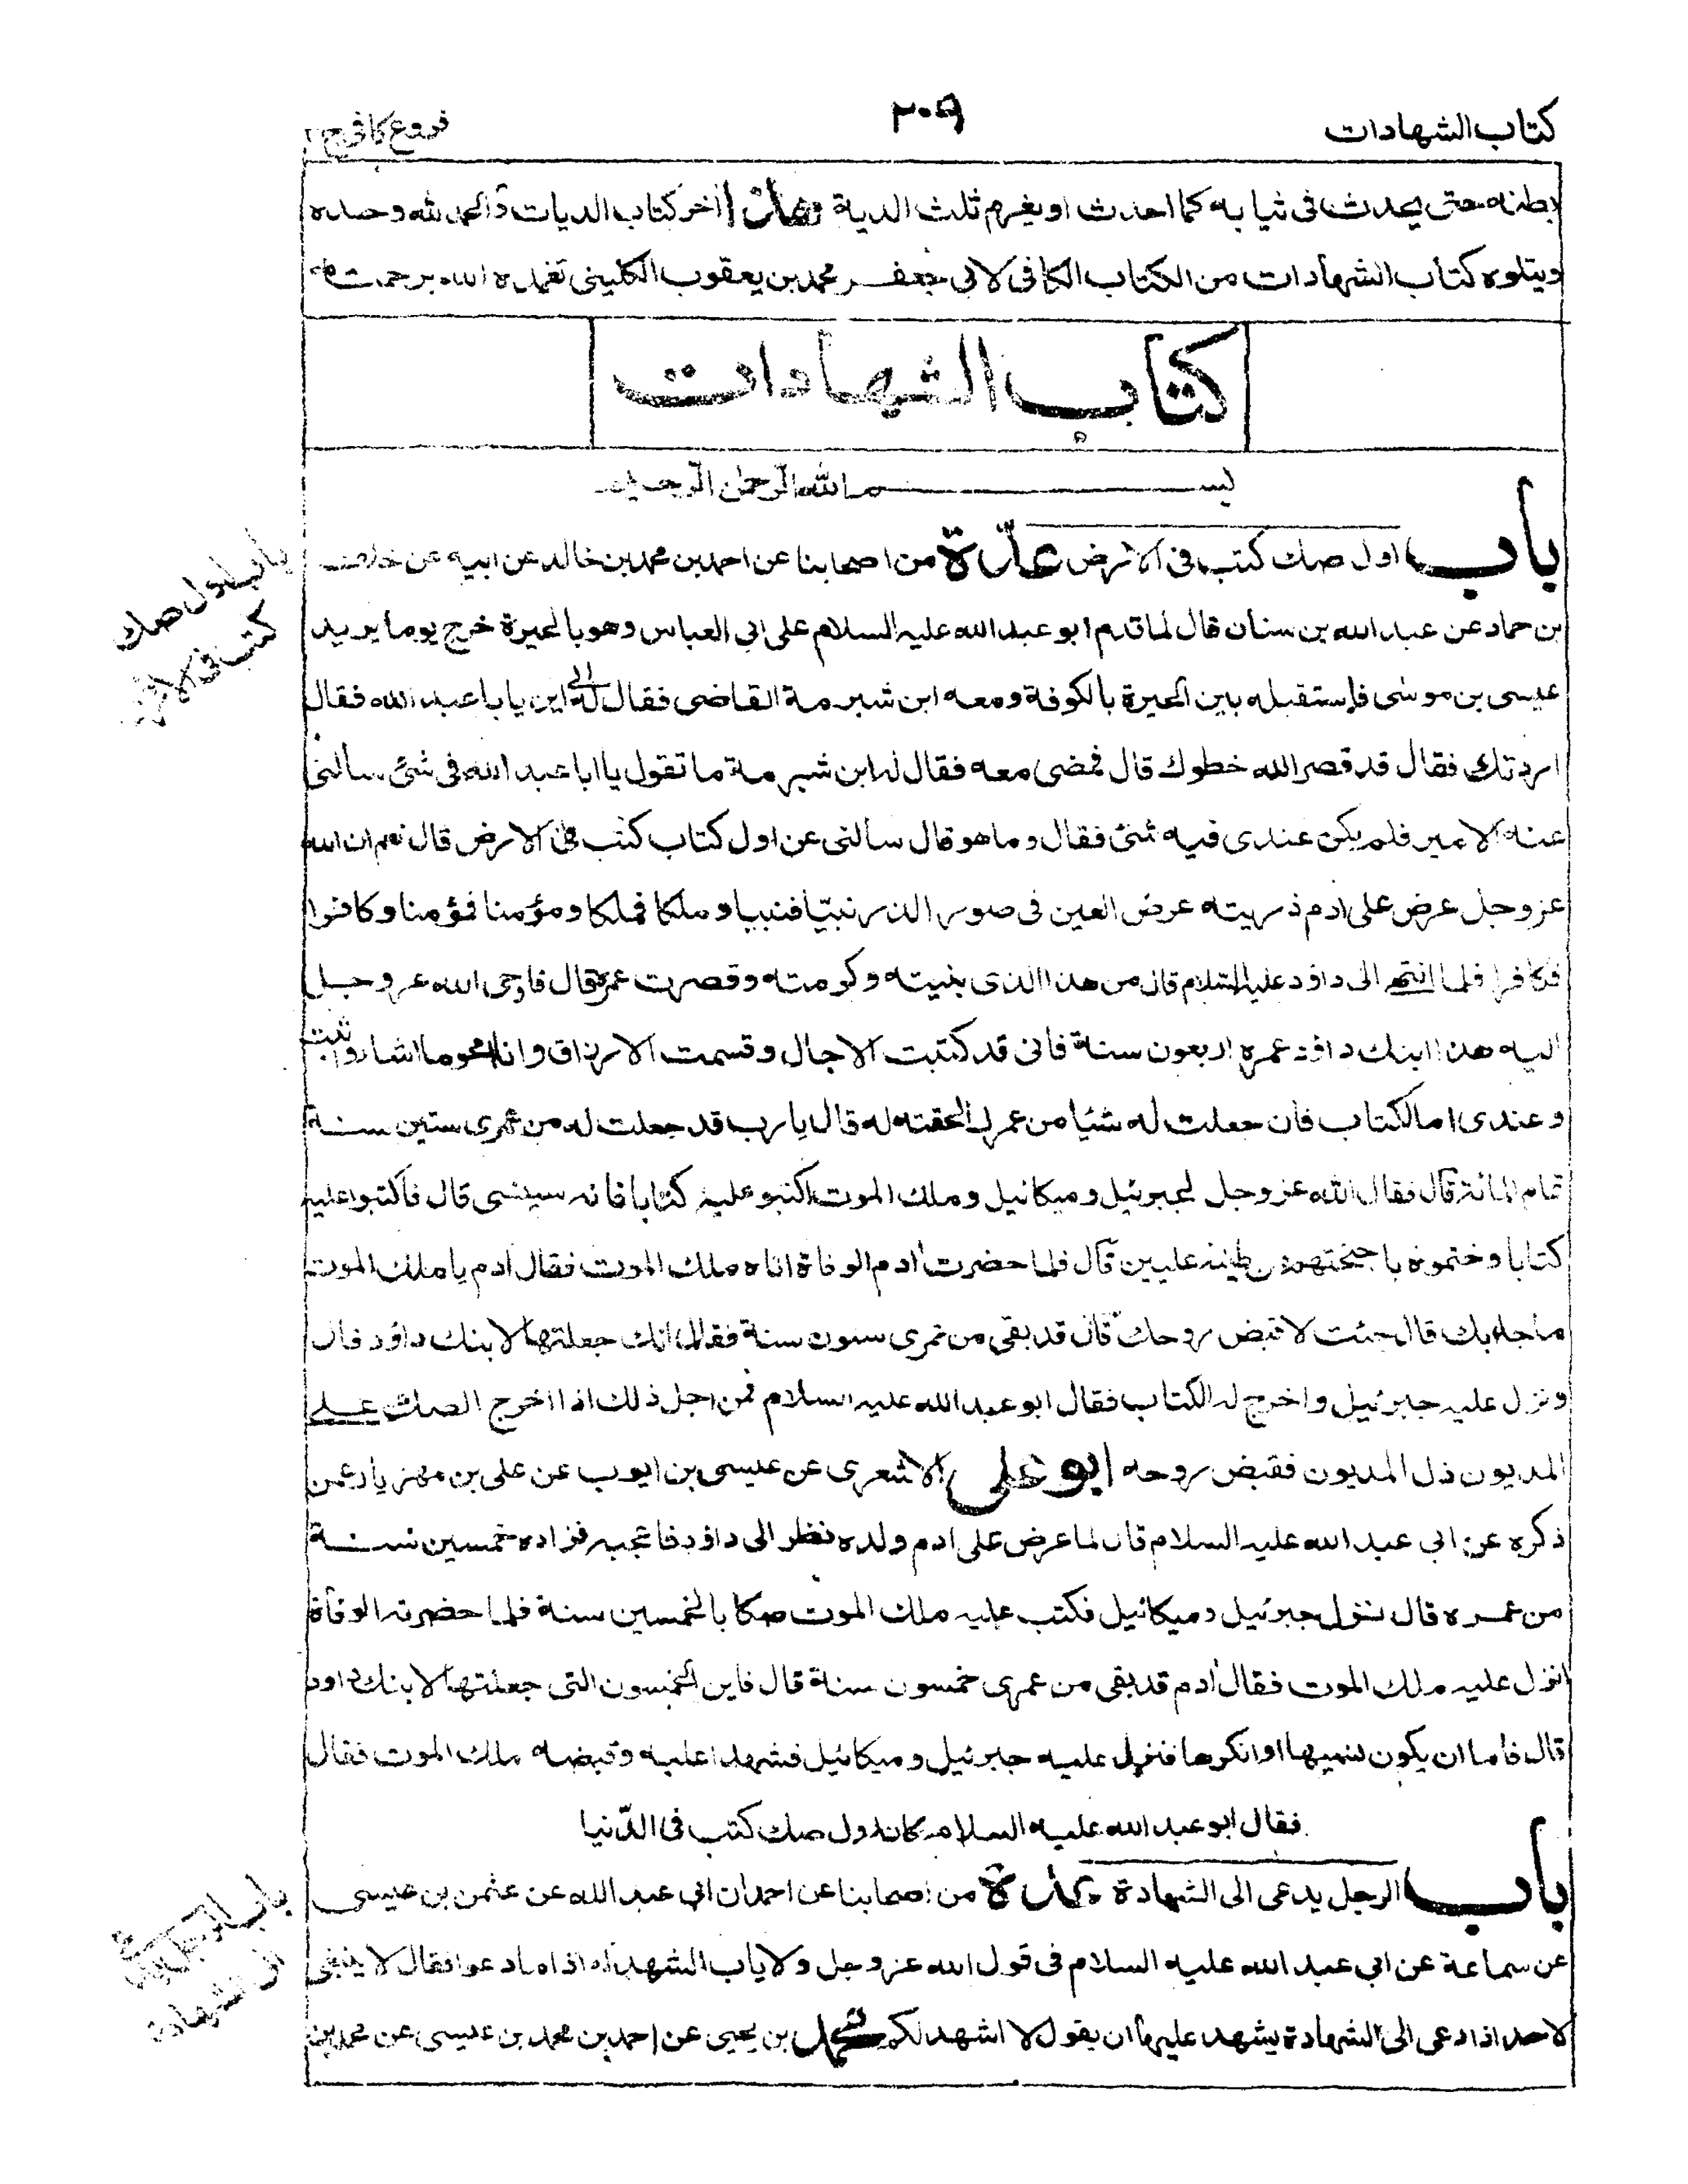 كتاب الشهادات
٢٠٩
فروع كافى ج
بطنه حتى يحدث فى ثيابه كما احدث او يغرم ثلث الدية هذا اخر كتاب الديات والحمد لله وحده
ويتلوه كتاب الشهادات من الكتاب الكافى لابى جعفر محمد بن يعقوب الكلينى تغمده الله برحمته
كتاب الشهادات
بسم الله الرحمن الرحيم
باب اول صك كتب فى الارض عدة من اصحابنا عن احمد بن محمد بن خالد عن ابيه عن خلف
بن حماد عن عبد الله بن سنان قال لما قدم ابو عبد الله عليه السلام على ابى العباس وهو بالحيرة خرج يوما يريد
عيسى بن موسى فاستقبله بين الحيرة بالكوفة ومعه ابن شبرمة القاضى فقال له الى اين يا با عبد الله فقال
اردتك فقال قد قصر الله خطوك قال فمضى معه فقال له ابن شبرمة ما تقول يا ابا عبد الله فى شئ سألنى
عنه الامير فلم يكن عندى فيه شئ فقال وما هو قال سألنى عن اول كتاب كتب فى الارض قال نعم ان الله
عز وجل عرض على ادم ذريته عرض العين فى صور الذر نبيّا فنبيا وملكا فملكا ومؤمنا فمؤمنا وكافرا
فكافرا فلما انتهى الى داؤد عليه السلام قال من هذا الذى بنيته وكرمته وقصرت عمره قال فاوحى الله عز وجل
اليه هذا ابنك داؤد عمره اربعون سنة فانى قد كتبت الاجال وقسمت الارزاق وانا امحو ما اشاء واثبت
وعندى ام الكتاب فان جعلت له شيئا من عمرك الحقته له قال يا رب قد جعلت له من عمرى ستين سنة
تمام المائة قال فقال الله عز وجل لجبرئيل وميكائيل وملك الموت اكتبو عليه كتابا فانه سينسى قال فاكتبوا عليه
كتابا وختموه باجنحتهم من طينة عليين قال فلما حضرت ادم الوفاة اتاه ملك الموت فقال ادم يا ملك الموت
ما جاء بك قال جئت لاقبض روحك قال قد بقى من عمرى ستون سنة فقال انك جعلتها لابنك داؤد قال
ونزل عليه جبرئيل واخرج له الكتاب فقال ابو عبد الله عليه السلام فمن اجل ذلك اذا اخرج الصك على
المديون ذل المديون فقبض روحه ابو على الاشعرى عن عيسى بن ايوب عن على بن مهزيار عمن
ذكره عن ابى عبد الله عليه السلام قال لما عرض على ادم ولده نظر الى داؤد فاعجبه فزاده خمسين سنة
من عمره قال نزل جبرئيل وميكائيل فكتب عليه ملك الموت صكا بالخمسين سنة فلما حضرته الوفاة
انزل عليه ملك الموت فقال ادم قد بقى من عمرى خمسون سنة قال فاين الخمسون التى جعلتها لابنك داود
قال فاما ان يكون نسيها او انكرها فنزل عليه جبرئيل وميكائيل فشهدا عليه وقبضه ملك الموت فقال
فقال ابو عبد الله عليه السلام كان اول صك كتب فى الدّنيا
باب الرجل يدعى الى الشهادة عدة من اصحابنا عن احمد بن ابى عبد الله عن عثمن بن عيسى
عن سماعة عن ابى عبد الله عليه السلام فى قول الله عز وجل ولا ياب الشهداء اذا ما دعوا فقال لا ينبغى
لاحد اذا دعى الى الشهادة يشهد عليها ان يقول لا اشهد لكم محمد بن يحيى عن احمد بن محمد بن عيسى عن محمد بن
باب اول صك
كتب فى الارض
باب الرجل يدعى
الى الشهادة